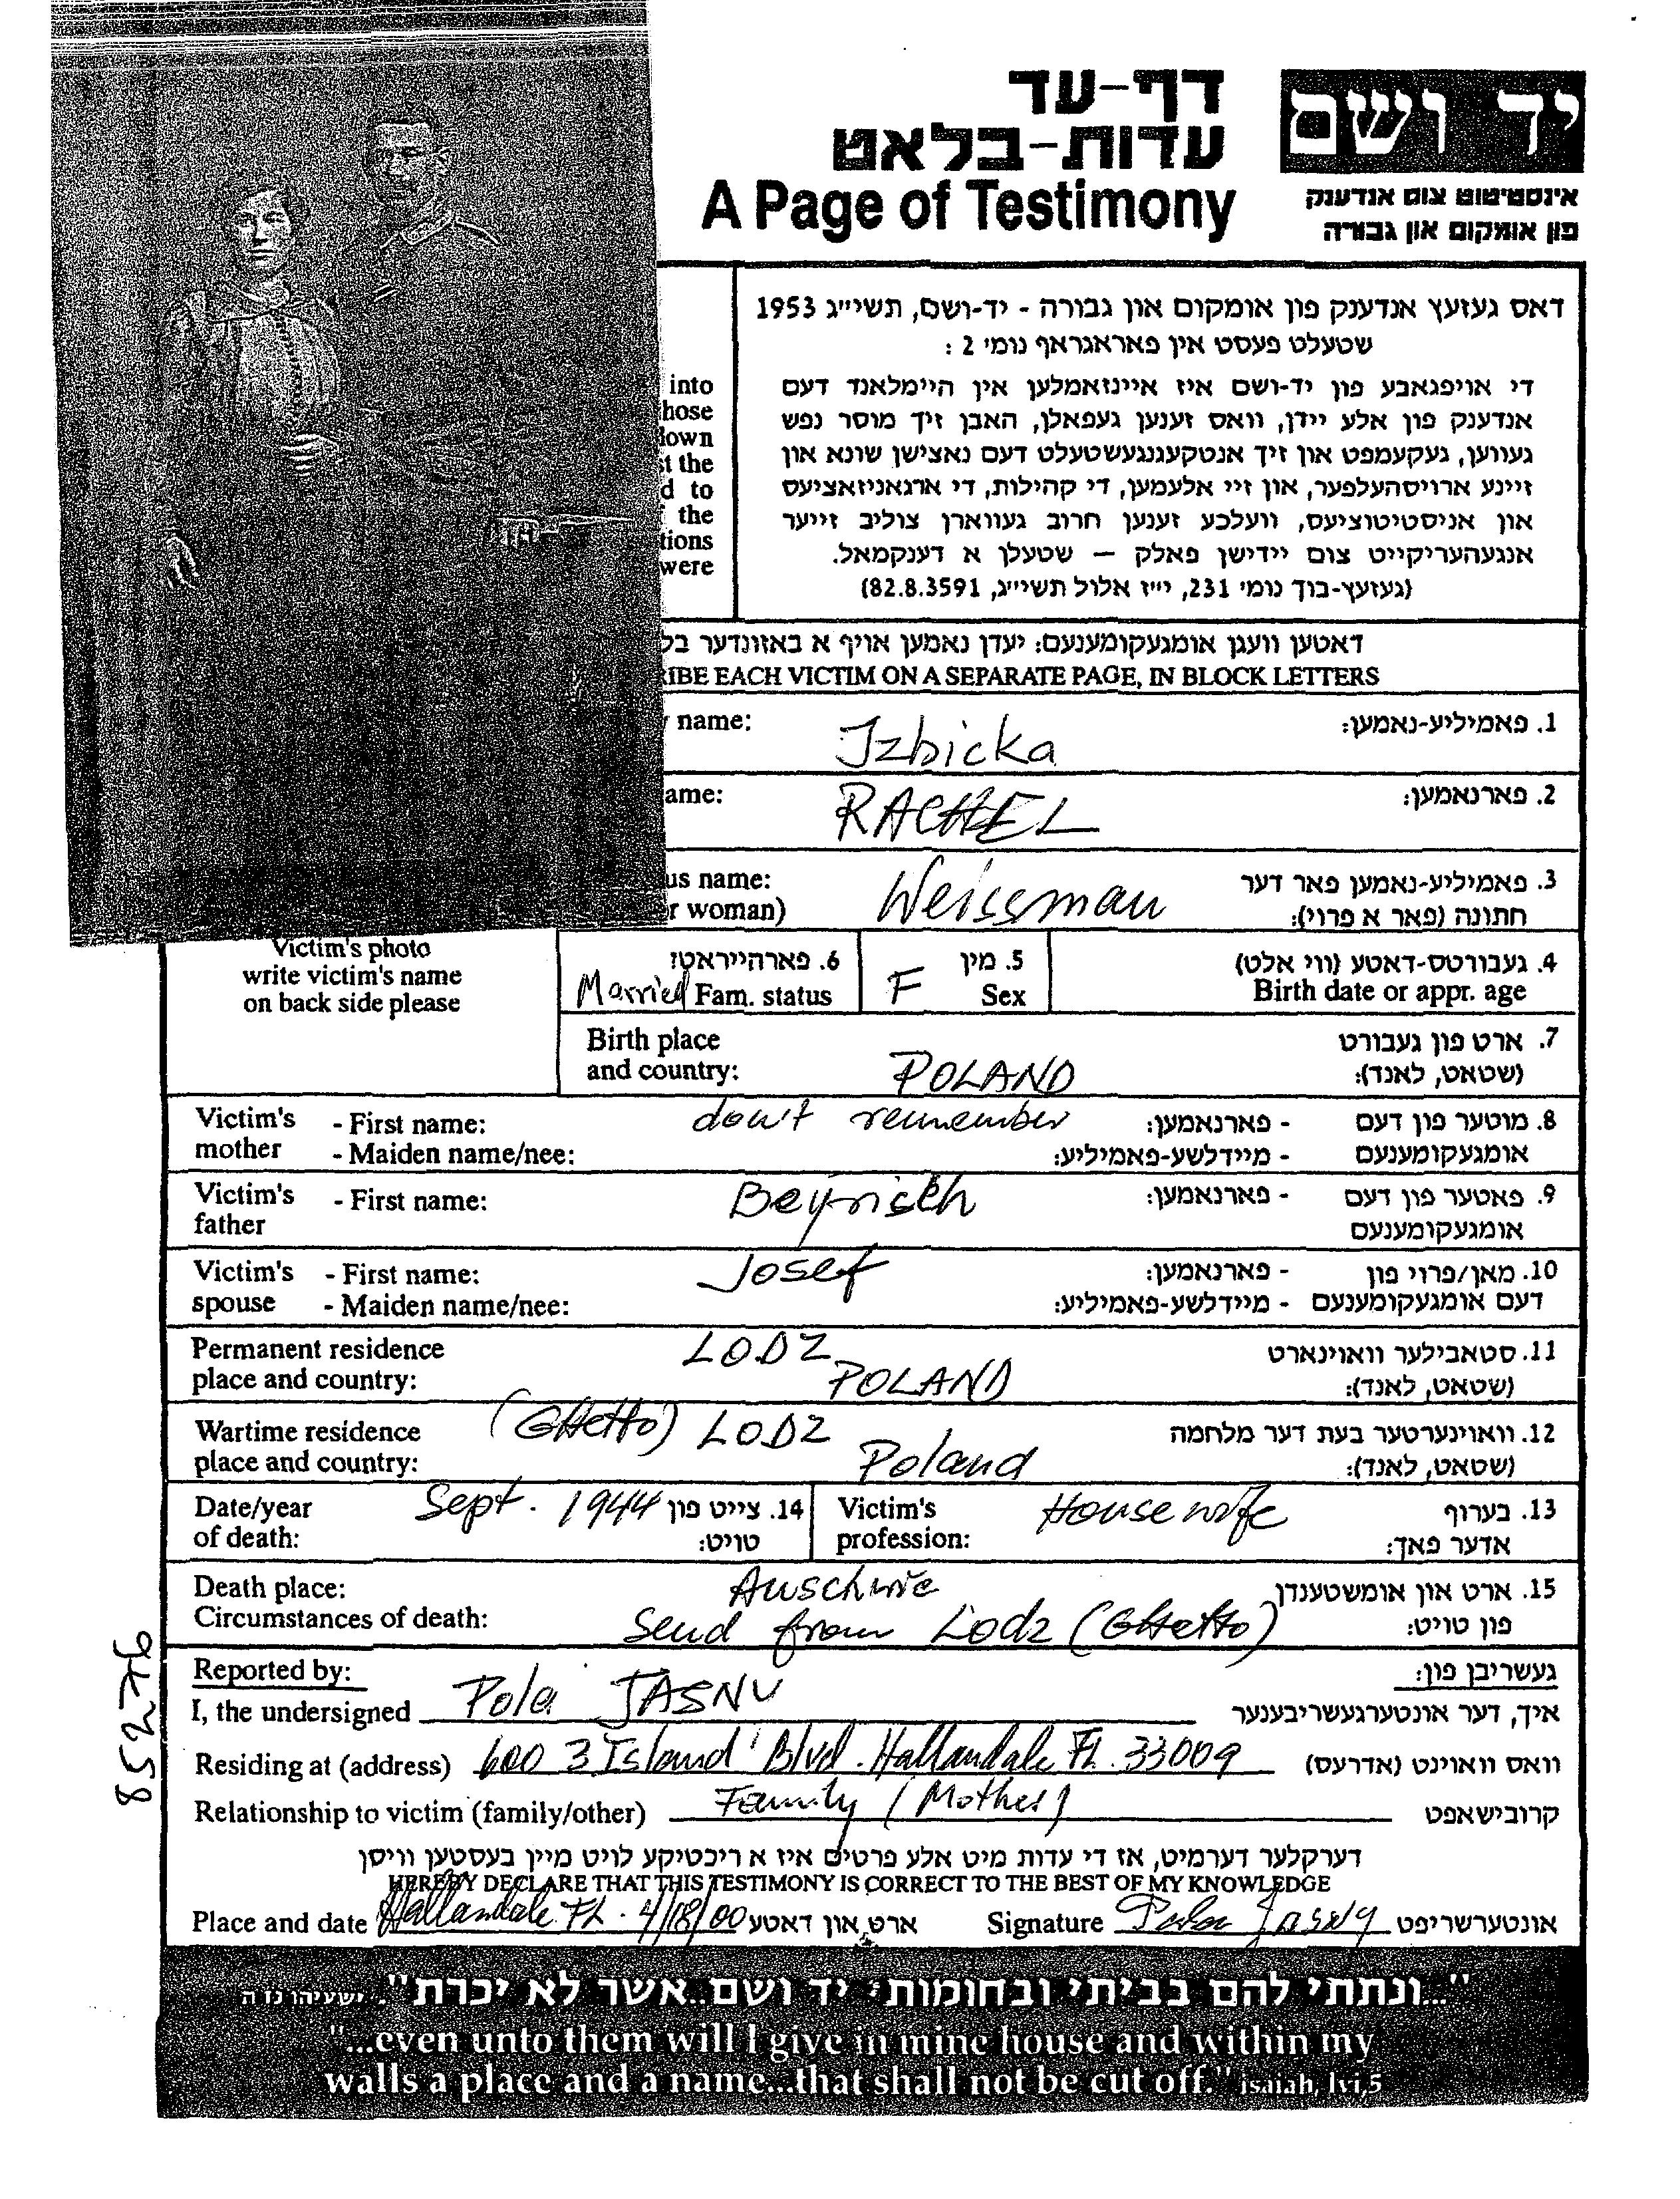 דף-עד
עדות-בלאט
A Page of Testimony
יד ושם
אינסטיטוט צום אנדענק
פון אומקום און גבורה
into
hose
down
st the
d to
the
tions
were
דאס געזעץ אנדענק פון אומקום און גבורה - יד-ושם, תשי״ג 1953
שטעלט פעסט אין פאראגראף נומ׳ 2 :
די אויפגאבע פון יד-ושם איז איינזאמלען אין היימלאנד דעם
אנדענק פון אלע יידן, וואס זענען געפאלן, האבן זיך מוסר נפש
געווען, געקעמפט און זיך אנטקעגנגעשטעלט דעם נאצישן שונא און
זיינע ארויסהעלפער, און זיי אלעמען, די קהילות, די ארגאניזאציעס
און אניסטיטוציעס, וועלכע זענען חרוב געווארן צוליב זייער
אנגעהעריקייט צום יידישן פאלק – שטעלן א דענקמאל.
(געזעץ-בוך נומ׳ 231, י״ז אלול תשי״ג, 82.8.3591)
דאטען וועגן אומגעקומענעם: יעדן נאמען אויף א באזונדער בל
RIBE EACH VICTIM ON A SEPARATE PAGE, IN BLOCK LETTERS
y name: Izbicka 1. פאמיליע-נאמען:
ame: RACHEL 2. פארנאמען:
us name: Weissman 3. פאמיליע-נאמען פאר דער
r woman) חתונה (פאר א פרוי):
Victim's photo
write victim's name
on back side please
6. פארהייראט? 5. מין 4. געבורטס-דאטע (ווי אלט)
Married Fam. status F Sex Birth date or appr. age
Birth place 7. ארט פון געבורט
and country: POLAND (שטאט, לאנד):
Victim's - First name: don't remember - פארנאמען: 8. מוטער פון דעם
mother - Maiden name/nee: - מיידלשע-פאמיליע: אומגעקומענעם
Victim's - First name: - פארנאמען: 9. פאטער פון דעם
father אומגעקומענעם
Victim's - First name: Josef - פארנאמען: 10. מאן/פרוי פון
spouse - Maiden name/nee: - מיידלשע-פאמיליע: דעם אומגעקומענעם
Permanent residence LODZ 11. סטאבילער וואוינארט
place and country: POLAND (שטאט, לאנד):
Wartime residence (Ghetto) LODZ 12. וואוינערטער בעת דער מלחמה
place and country: Poland (שטאט, לאנד):
Date/year Sept. 1944 14. צייט פון Victim's Housewife 13. בערוף
of death: טויט: profession: אדער פאך:
Death place: 15. ארט און אומשטענדן
Circumstances of death: Send from Lodz (Ghetto) פון טויט:
Reported by: געשריבן פון:
I, the undersigned Pola JASNY איך, דער אונטערגעשריבענער
Residing at (address) 600 3 Island Blvd. Hallandale Fl. 33009 וואס וואוינט (אדרעס)
Relationship to victim (family/other) Family (Mother) קרובישאפט
דערקלער דערמיט, אז די עדות מיט אלע פרטים איז א ריכטיקע לויט מיין בעסטען וויסן
HEREBY DECLARE THAT THIS TESTIMONY IS CORRECT TO THE BEST OF MY KNOWLEDGE
Place and date Hallandale Fl. 4/18/00 ארט און דאטע Signature Pola Jasny אונטערשריפט
"...ונתתי להם בביתי ובחומותי יד ושם...אשר לא יכרת" ישעיהו נו ה
"...even unto them will I give in mine house and within my
walls a place and a name...that shall not be cut off." isaiah, lvi,5
85276